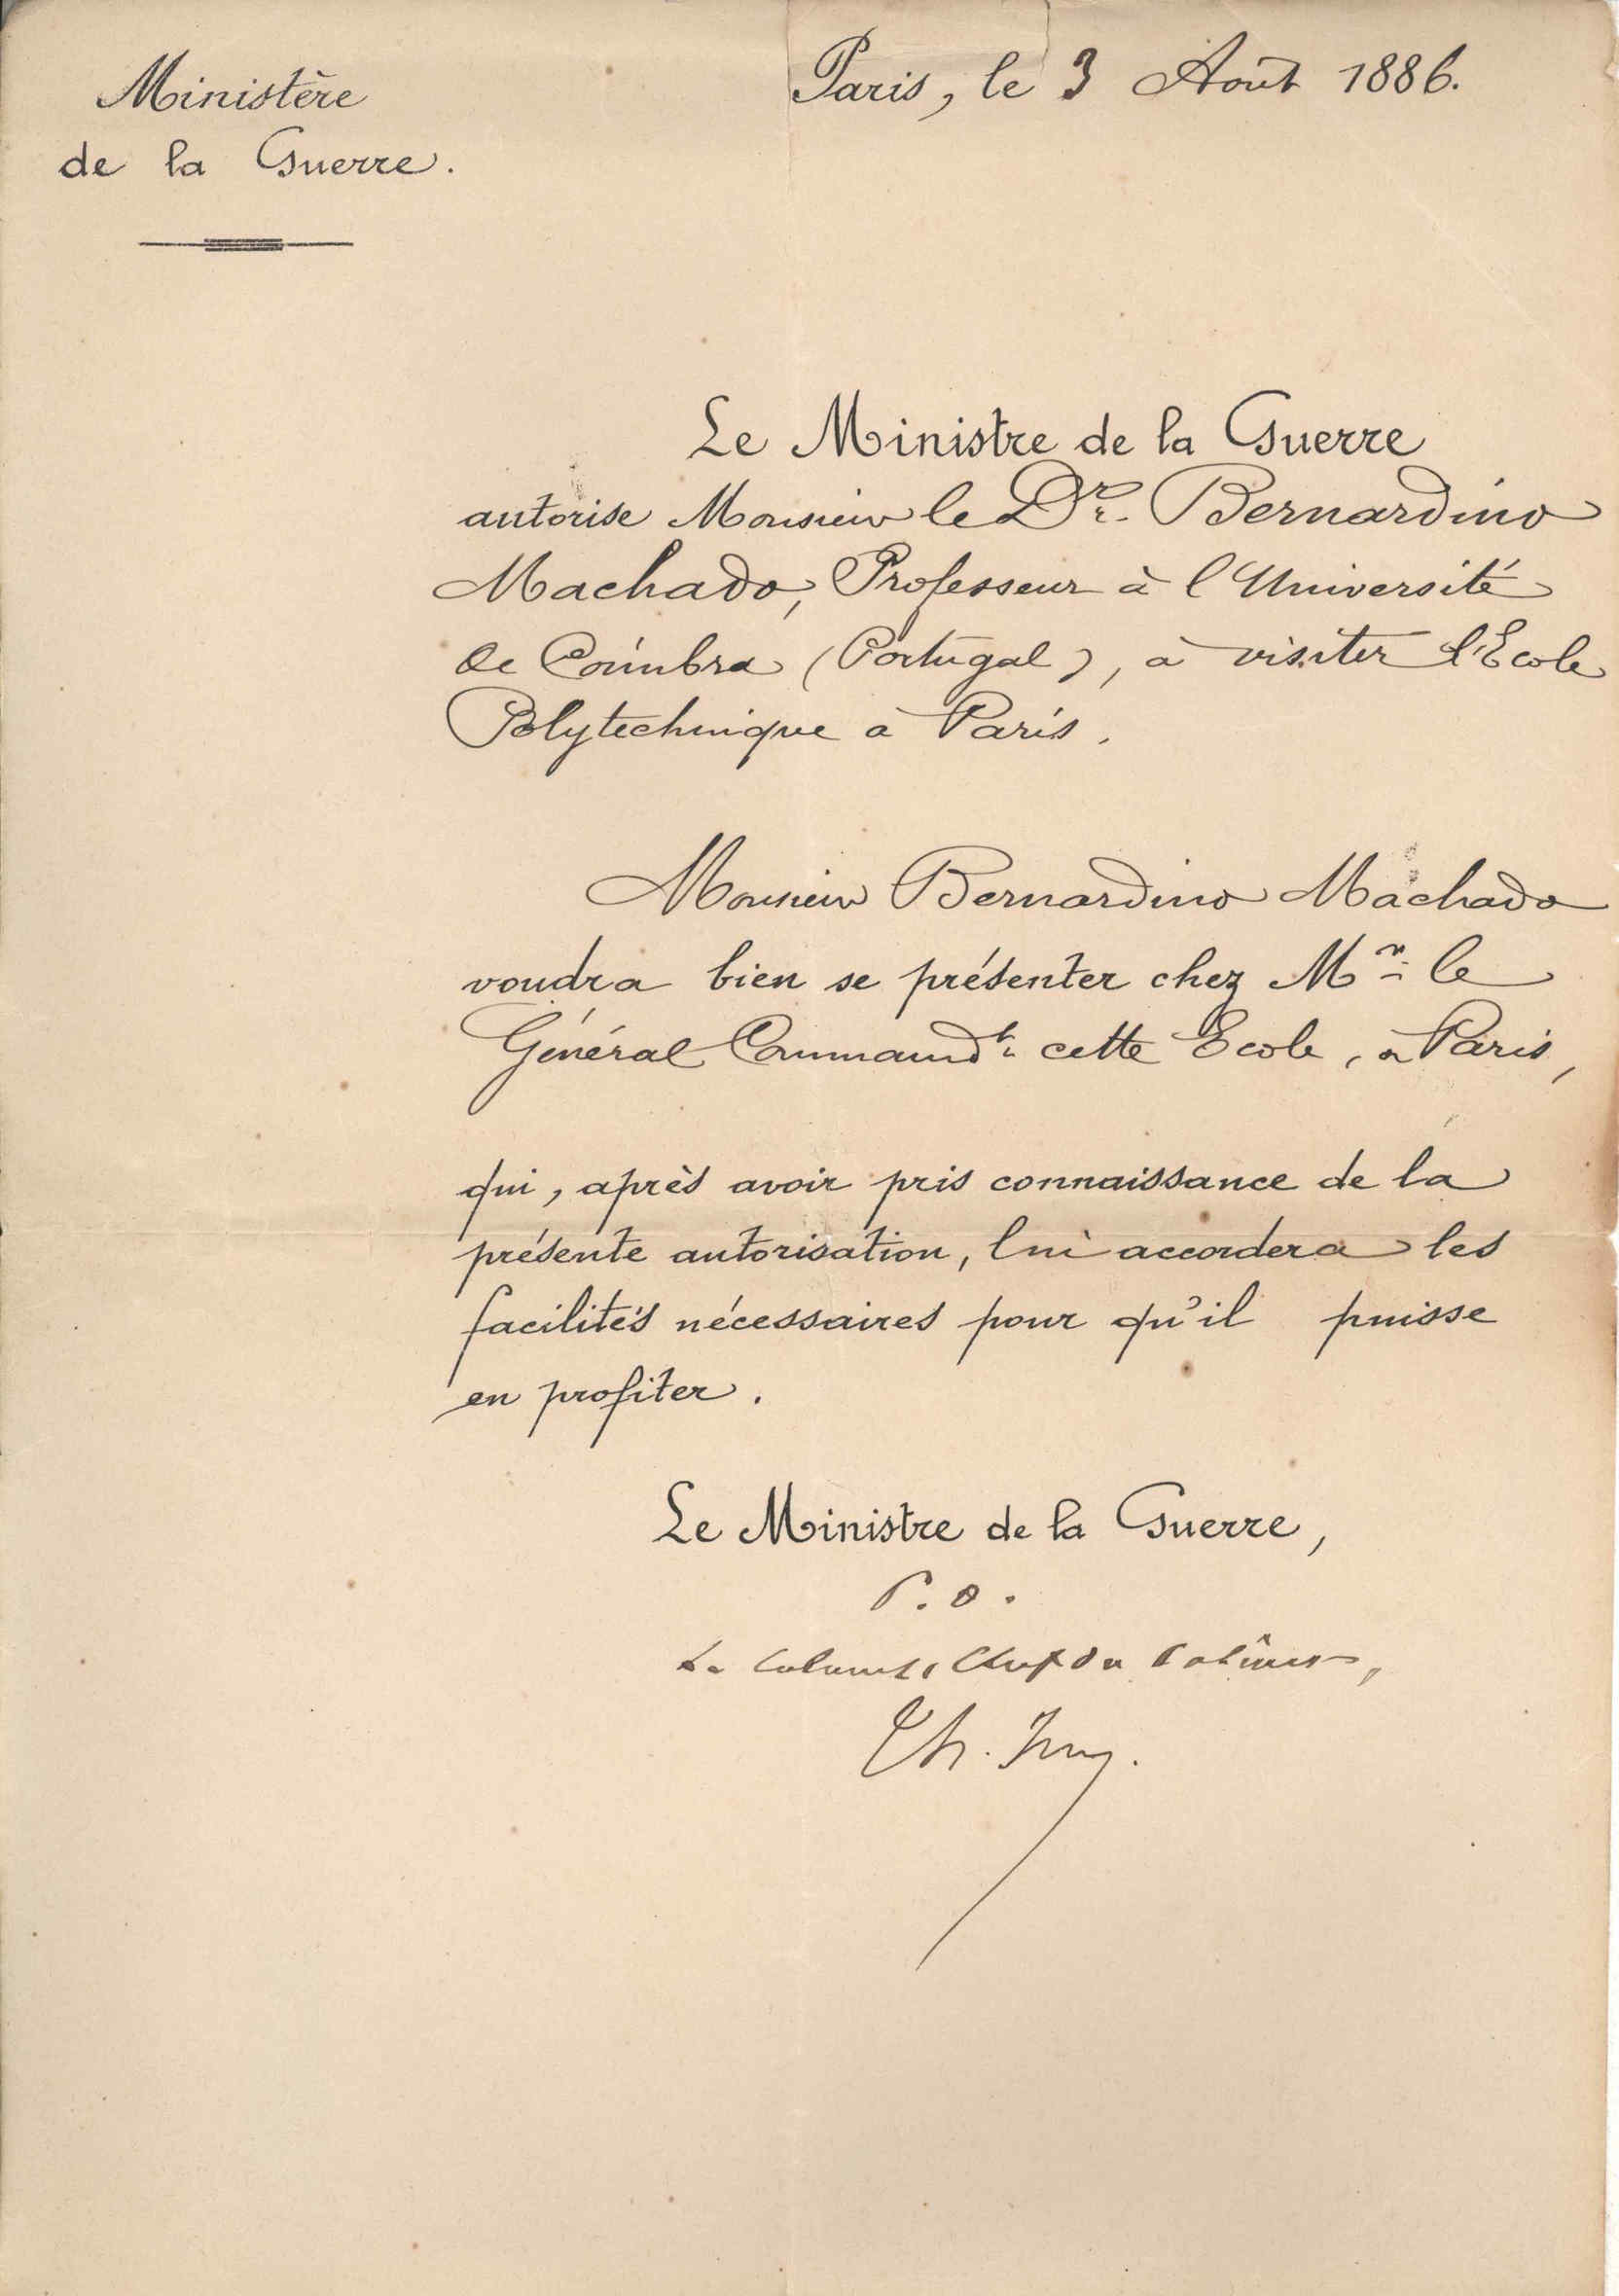 Ministère
de la Guerre.
Paris, le 3 Août 1886.
Le Ministre de la Guerre
autorise Monsieur le Dr. Bernardino
Machado, Professeur à l'Université
de Coimbra (Portugal), à visiter l'Ecole
Polytechnique à Paris.
Monsieur Bernardino Machado
voudra bien se présenter chez Mr. le
Général Commandt. cette Ecole, à Paris,
qui, après avoir pris connaissance de la
présente autorisation, lui accordera les
facilités nécessaires pour qu'il puisse
en profiter.
Le Ministre de la Guerre,
P.O.
Le Colonel, Chef du Cabinet,
Th. Jung.